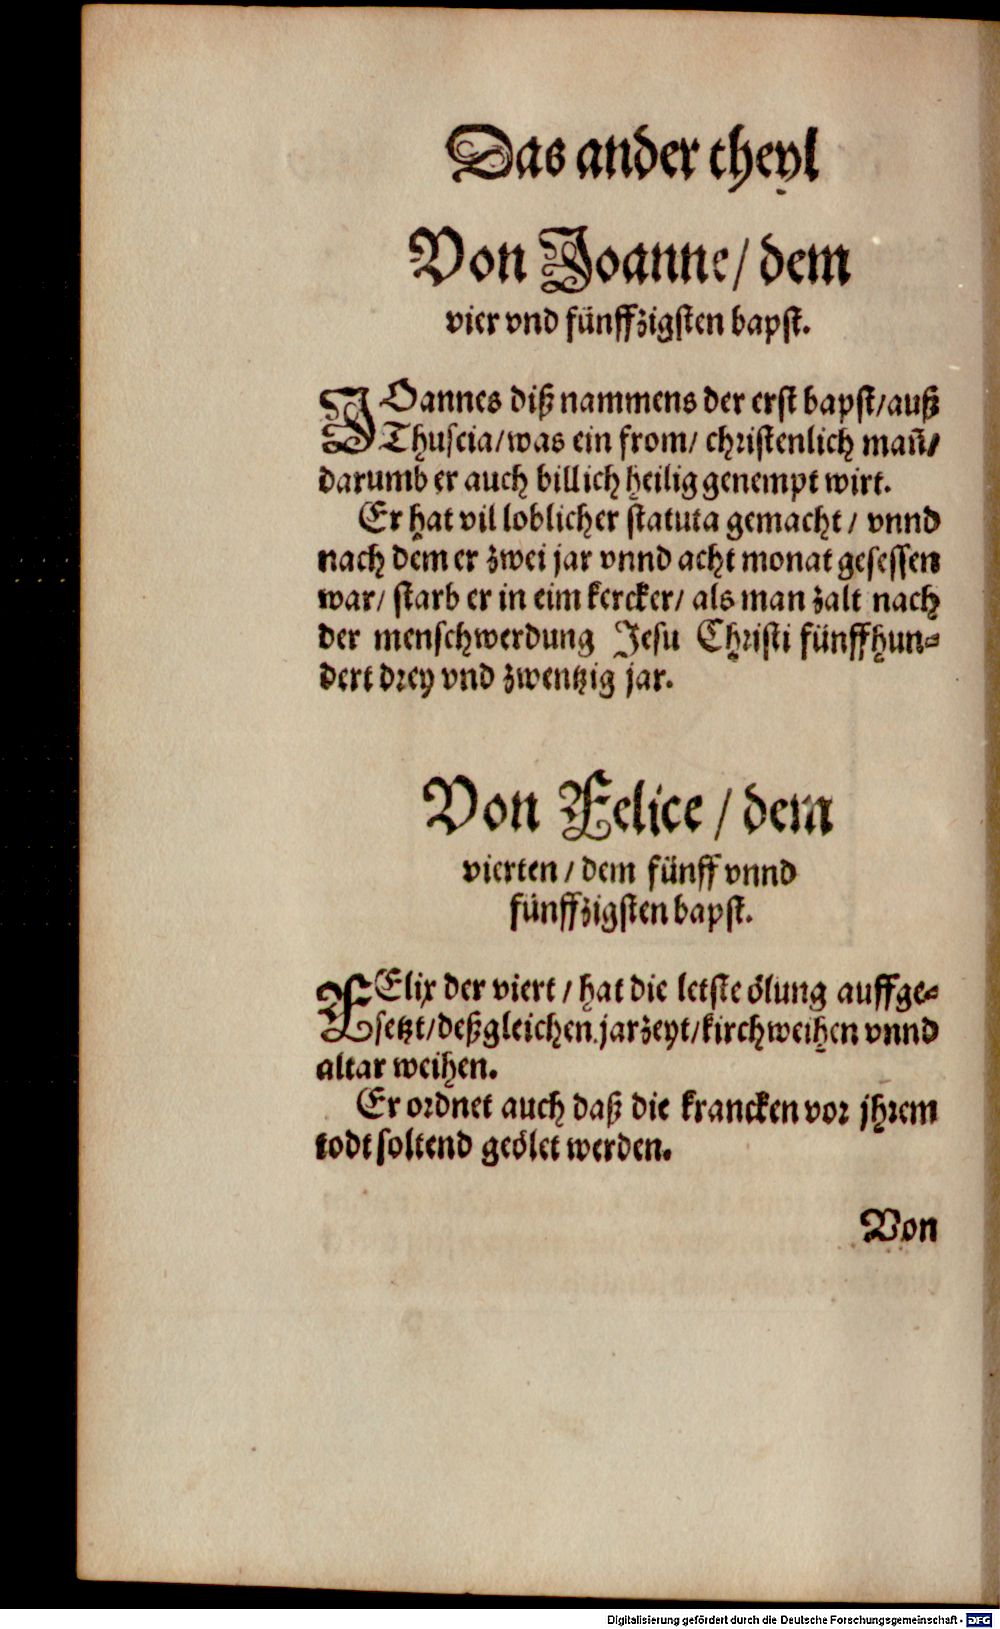 Das ander theyl
Von Joanne/ dem
vier vnd fünffzigsten bapst.
JOannes diß nammens der erst bapst/ auß
Thuscia/ was ein from/ christenlich mañ/
darumb er auch billich heilig genempt wirt.
Er hat vil loblicher statuta gemacht/ vnnd
nach dem er zwei jar vnnd acht monat gesessen
war/ starb er in eim kercker/ als man zalt nach
der menschwerdung Jesu Christi fünffhun-
dert drey vnd zwentzig jar.
Von Felice/ dem
vierten/ dem fünff vnnd
fünffzigsten bapst.
FElix der viert/ hat die letste ölung auffge-
setzt/ deßgleichen jarzeyt/ kirchweihen vnnd
altar weihen.
Er ordnet auch daß die krancken vor jhrem
todt soltend geölet werden.
Von
Digitalisierung gefördert durch die Deutsche Forschungsgemeinschaft - DFG